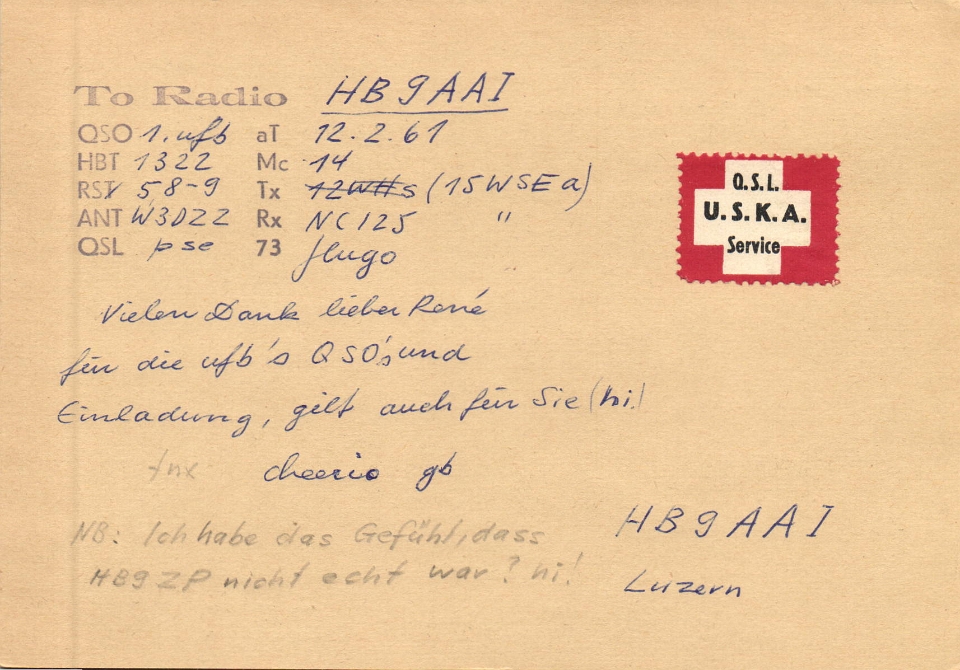 To Radio HB9AAI
QSO 1. ufb aT 12.2.61
HBT 1322 Mc 14
RST 58-9 Tx (15WSEa)
ANT W3DZZ Rx NC125 "
QSL pse 73 Hugo
Q.S.L.
U.S.K.A.
Service
Vielen Dank lieber René
für die ufb's QSO's und
Einladung, gilt auch für Sie (hi!)
tnx cheerio gb
NB: Ich habe das Gefühl, dass
HB9ZP nicht echt war? hi!
HB9AAI
Luzern